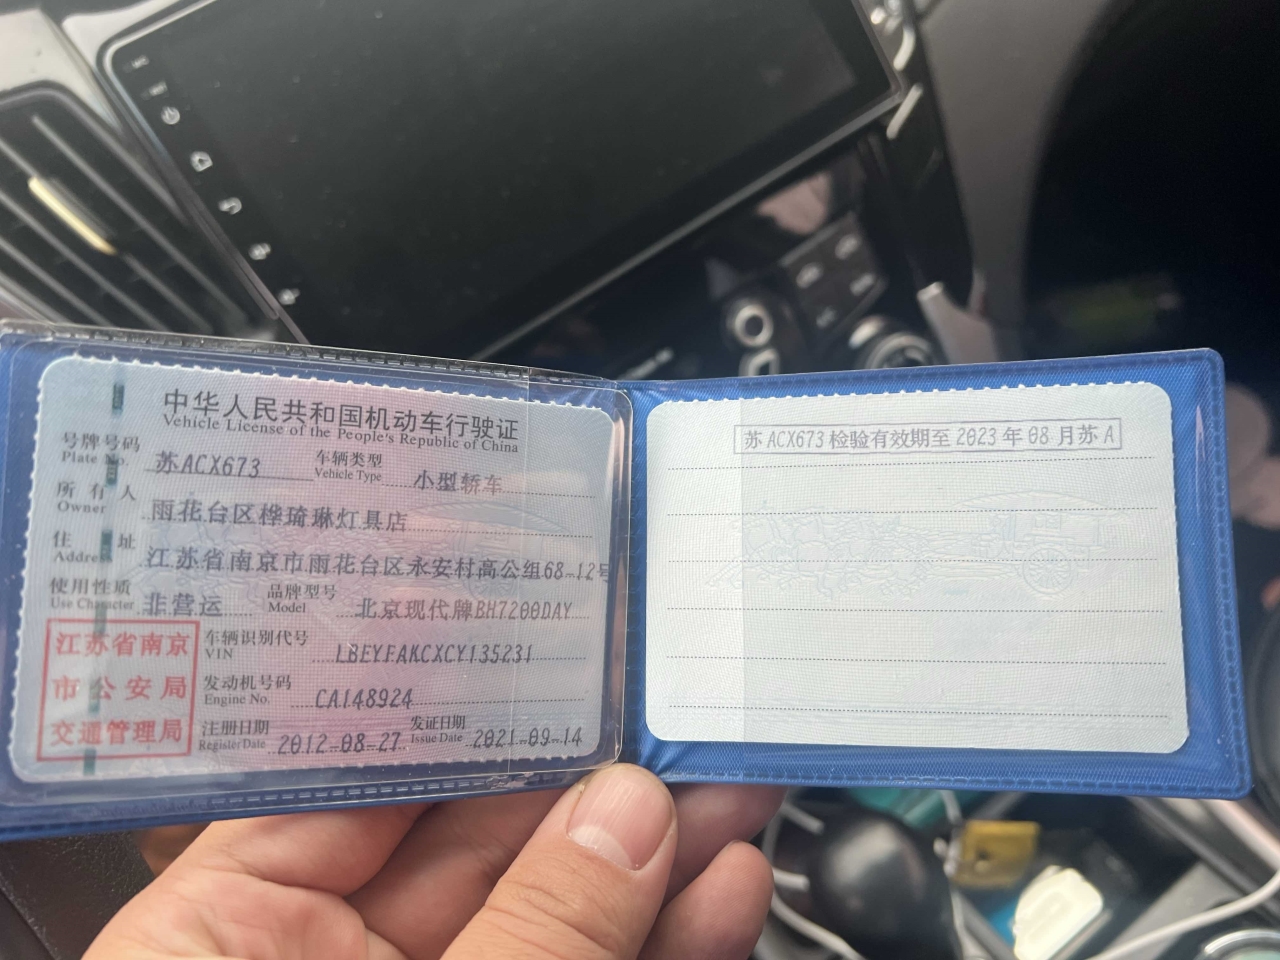 中华人民共和国机动车行驶证
Vehicle License of the People's Republic of China
号牌号码 苏ACX673 车辆类型 小型轿车
Plate No. Vehicle Type
所有人 雨花台区桦琦琳灯具店
Owner
住址 江苏省南京市雨花台区永安村高公组68-12号
Address
使用性质 非营运 品牌型号 北京现代牌BH7200DAY
Use Character Model
江苏省南京
市公安局
交通管理局
车辆识别代号 LBEYFAKCXCY135231
VIN
发动机号码 CA148924
Engine No.
注册日期 2012-08-27 发证日期 2021-09-14
Register Date Issue Date
苏ACX673检验有效期至2023年08月苏A